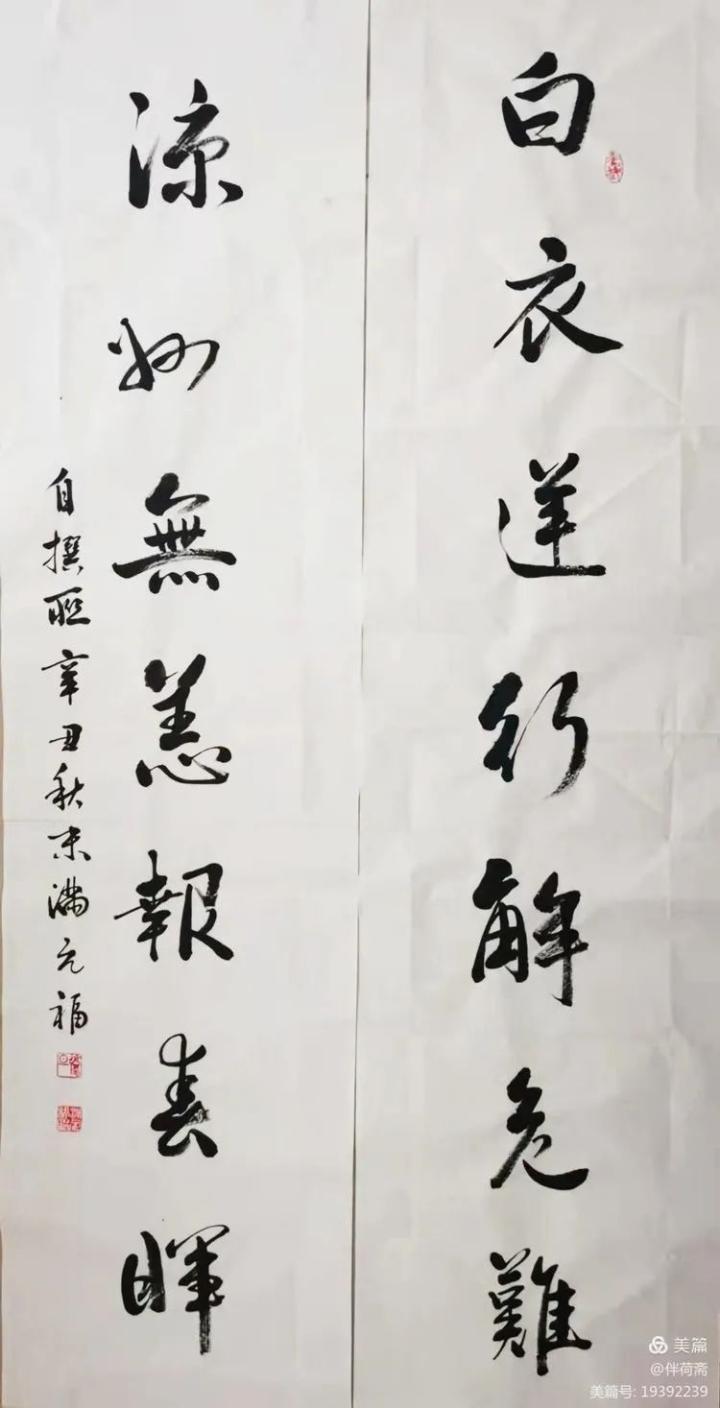 白衣逆行解危難
涼州無恙報春暉
自撰聯辛丑秋末滿元福
美篇
@伴荷斋
美篇号: 19392239